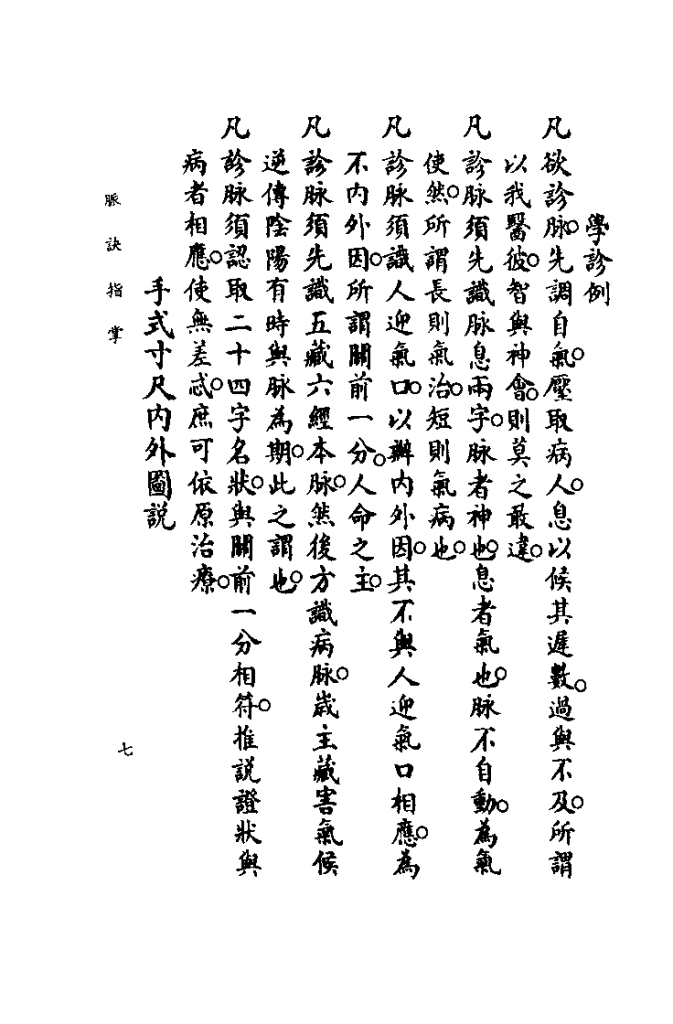 學診例
凡欲診脉。先調自氣。壓取病人。息以候其遲數。過與不及。所謂
以我醫彼。智與神會。則莫之敢違。
凡診脉須先識脉息兩字。脉者神也。息者氣也。脉不自動。為氣
使然。所謂長則氣治。短則氣病也。
凡診脉須識人迎氣口。以辨內外因。其不與人迎氣口相應。為
不內外因。所謂關前一分。人命之主。
凡診脉須先識五藏六經本脉。然後方識病脉。歲主藏害氣候
逆傳陰陽有時與脉為期。此之謂也。
凡診脉須認取二十四字名狀。與關前一分相符。推說證狀與
病者相應。使無差忒。庶可依原治療。
手式寸尺內外圖說
脈訣指掌
七